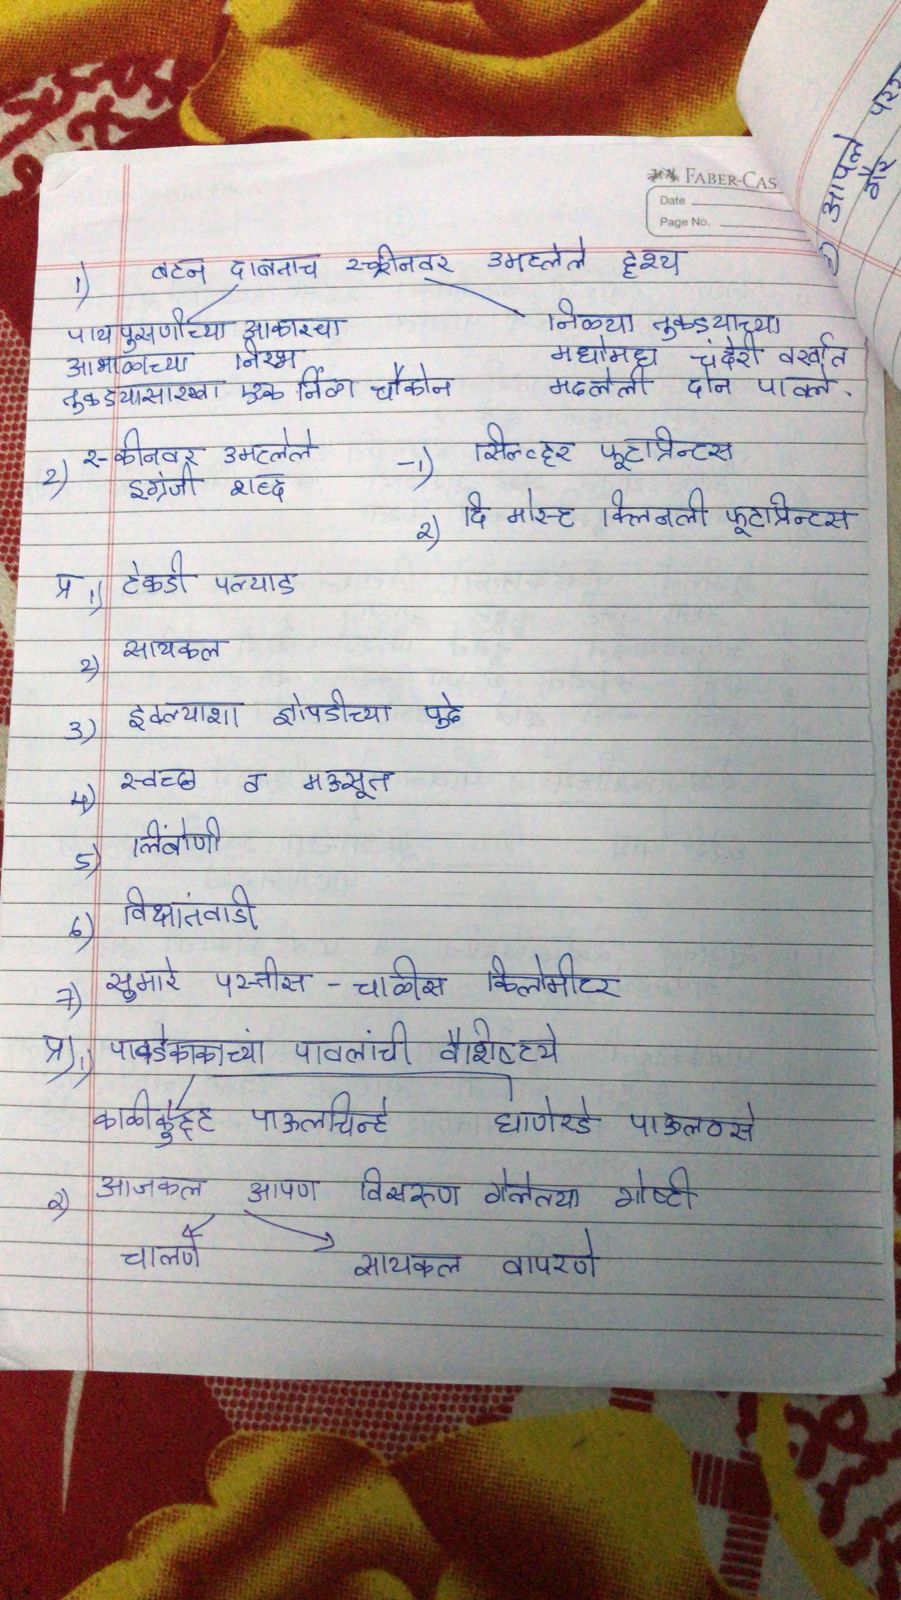 FABER-CAS
Date
Page No.
आपले
पर
1) बटन दाबताच स्क्रीनवर उमटलेले दृश्य
पायपुसणीच्या आकाराचा
आभाळाच्या निरभ्र
तुकड्यासारखा एक निळा चौकोन
निळ्या तुकड्याच्या
मधोमध चंदेरी वर्खात
मढलेली दोन पावले.
2) स्क्रीनवर उमटलेले
इंग्रजी शब्द
-1) सिल्व्हर फूटप्रिन्टस
२) दि मोस्ट क्लिनली फूटप्रिन्टस
प्र 1) टेकडी पल्याड
2) सायकल
3) इवल्याशा झोपडीच्या पुढे
4) स्वच्छ व मऊसूत
5) लिंबोणी
6) विश्रांतवाडी
7) सुमारे पस्तीस - चाळीस किलोमीटर
प्र) 1) पावडेकाकाच्या पावलांची वैशिष्ट्ये
काळीकुट्ट पाऊलचिन्हे घाणेरडे पाऊलठसे
२) आजकाल आपण विसरुण गेलेल्या गोष्टी
चालणे सायकल वापरणे